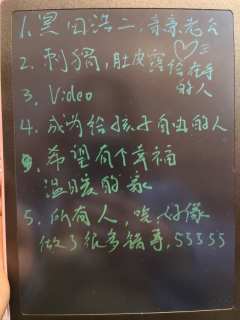 1. 黑田浩二, 音乐老台
2. 刺猬, 肚皮露给在乎
的人
3. Video
4. 成为给孩子自由的人
9. 希望有个幸福
温暖的家
5. 所有人, 唉, 好像
做了很多错事, 55555